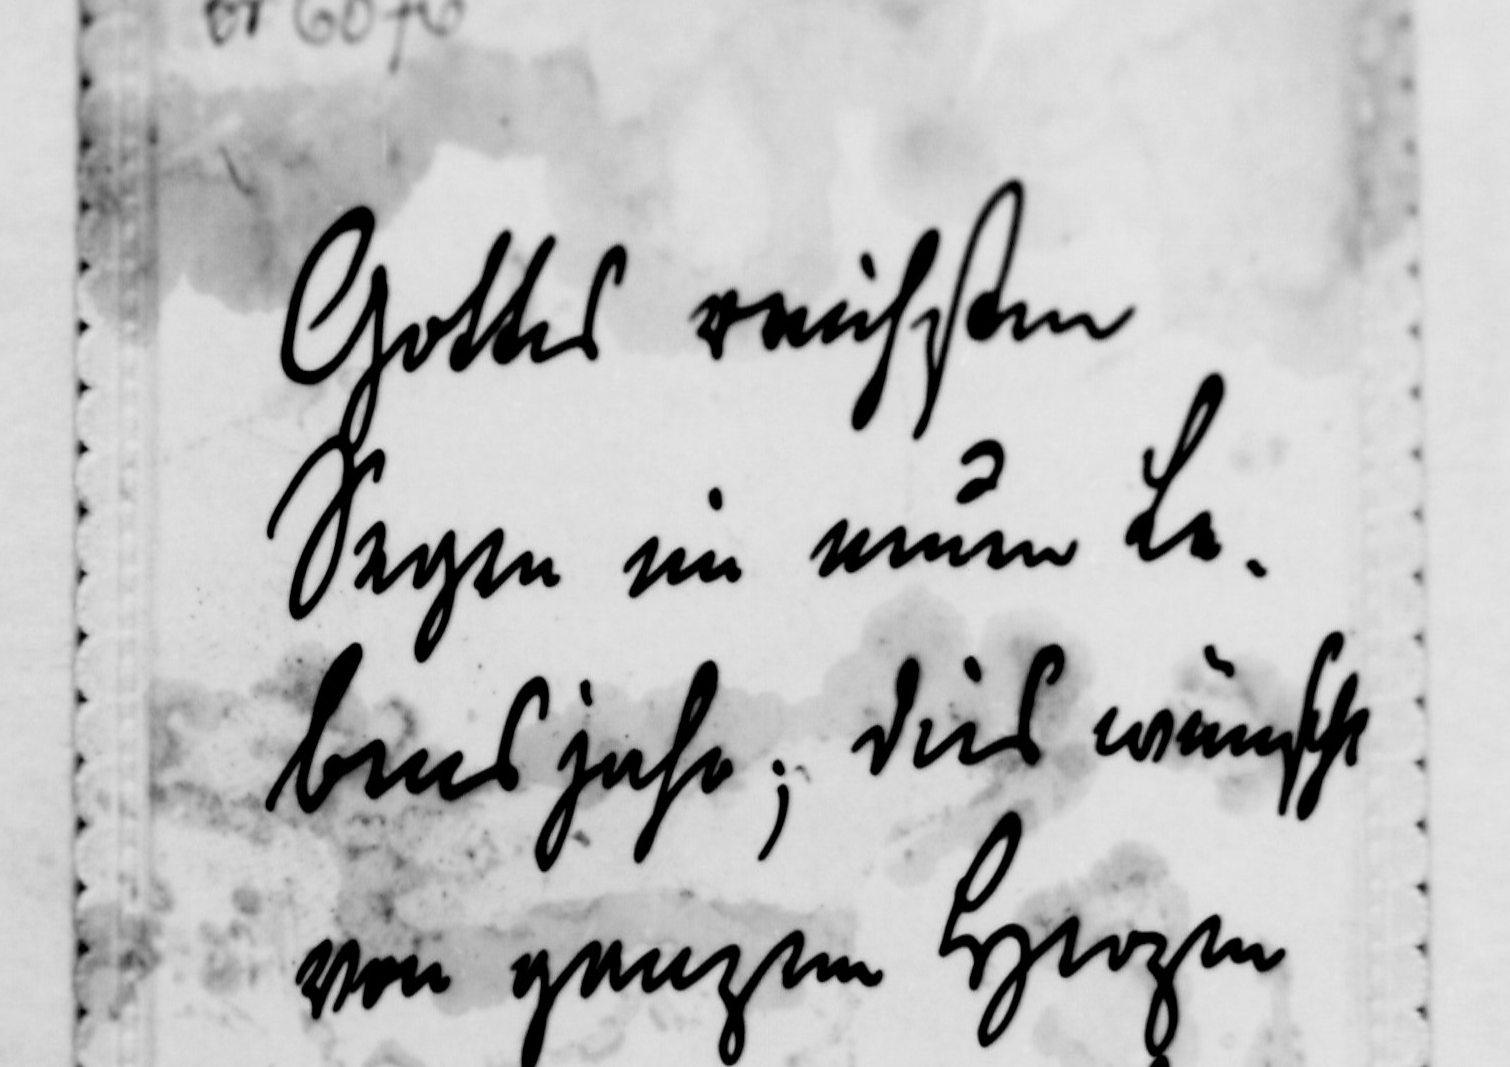 Gottes reichsten
Segen im neuen Le-
bensjahr, dies wünscht
von ganzem Herzen